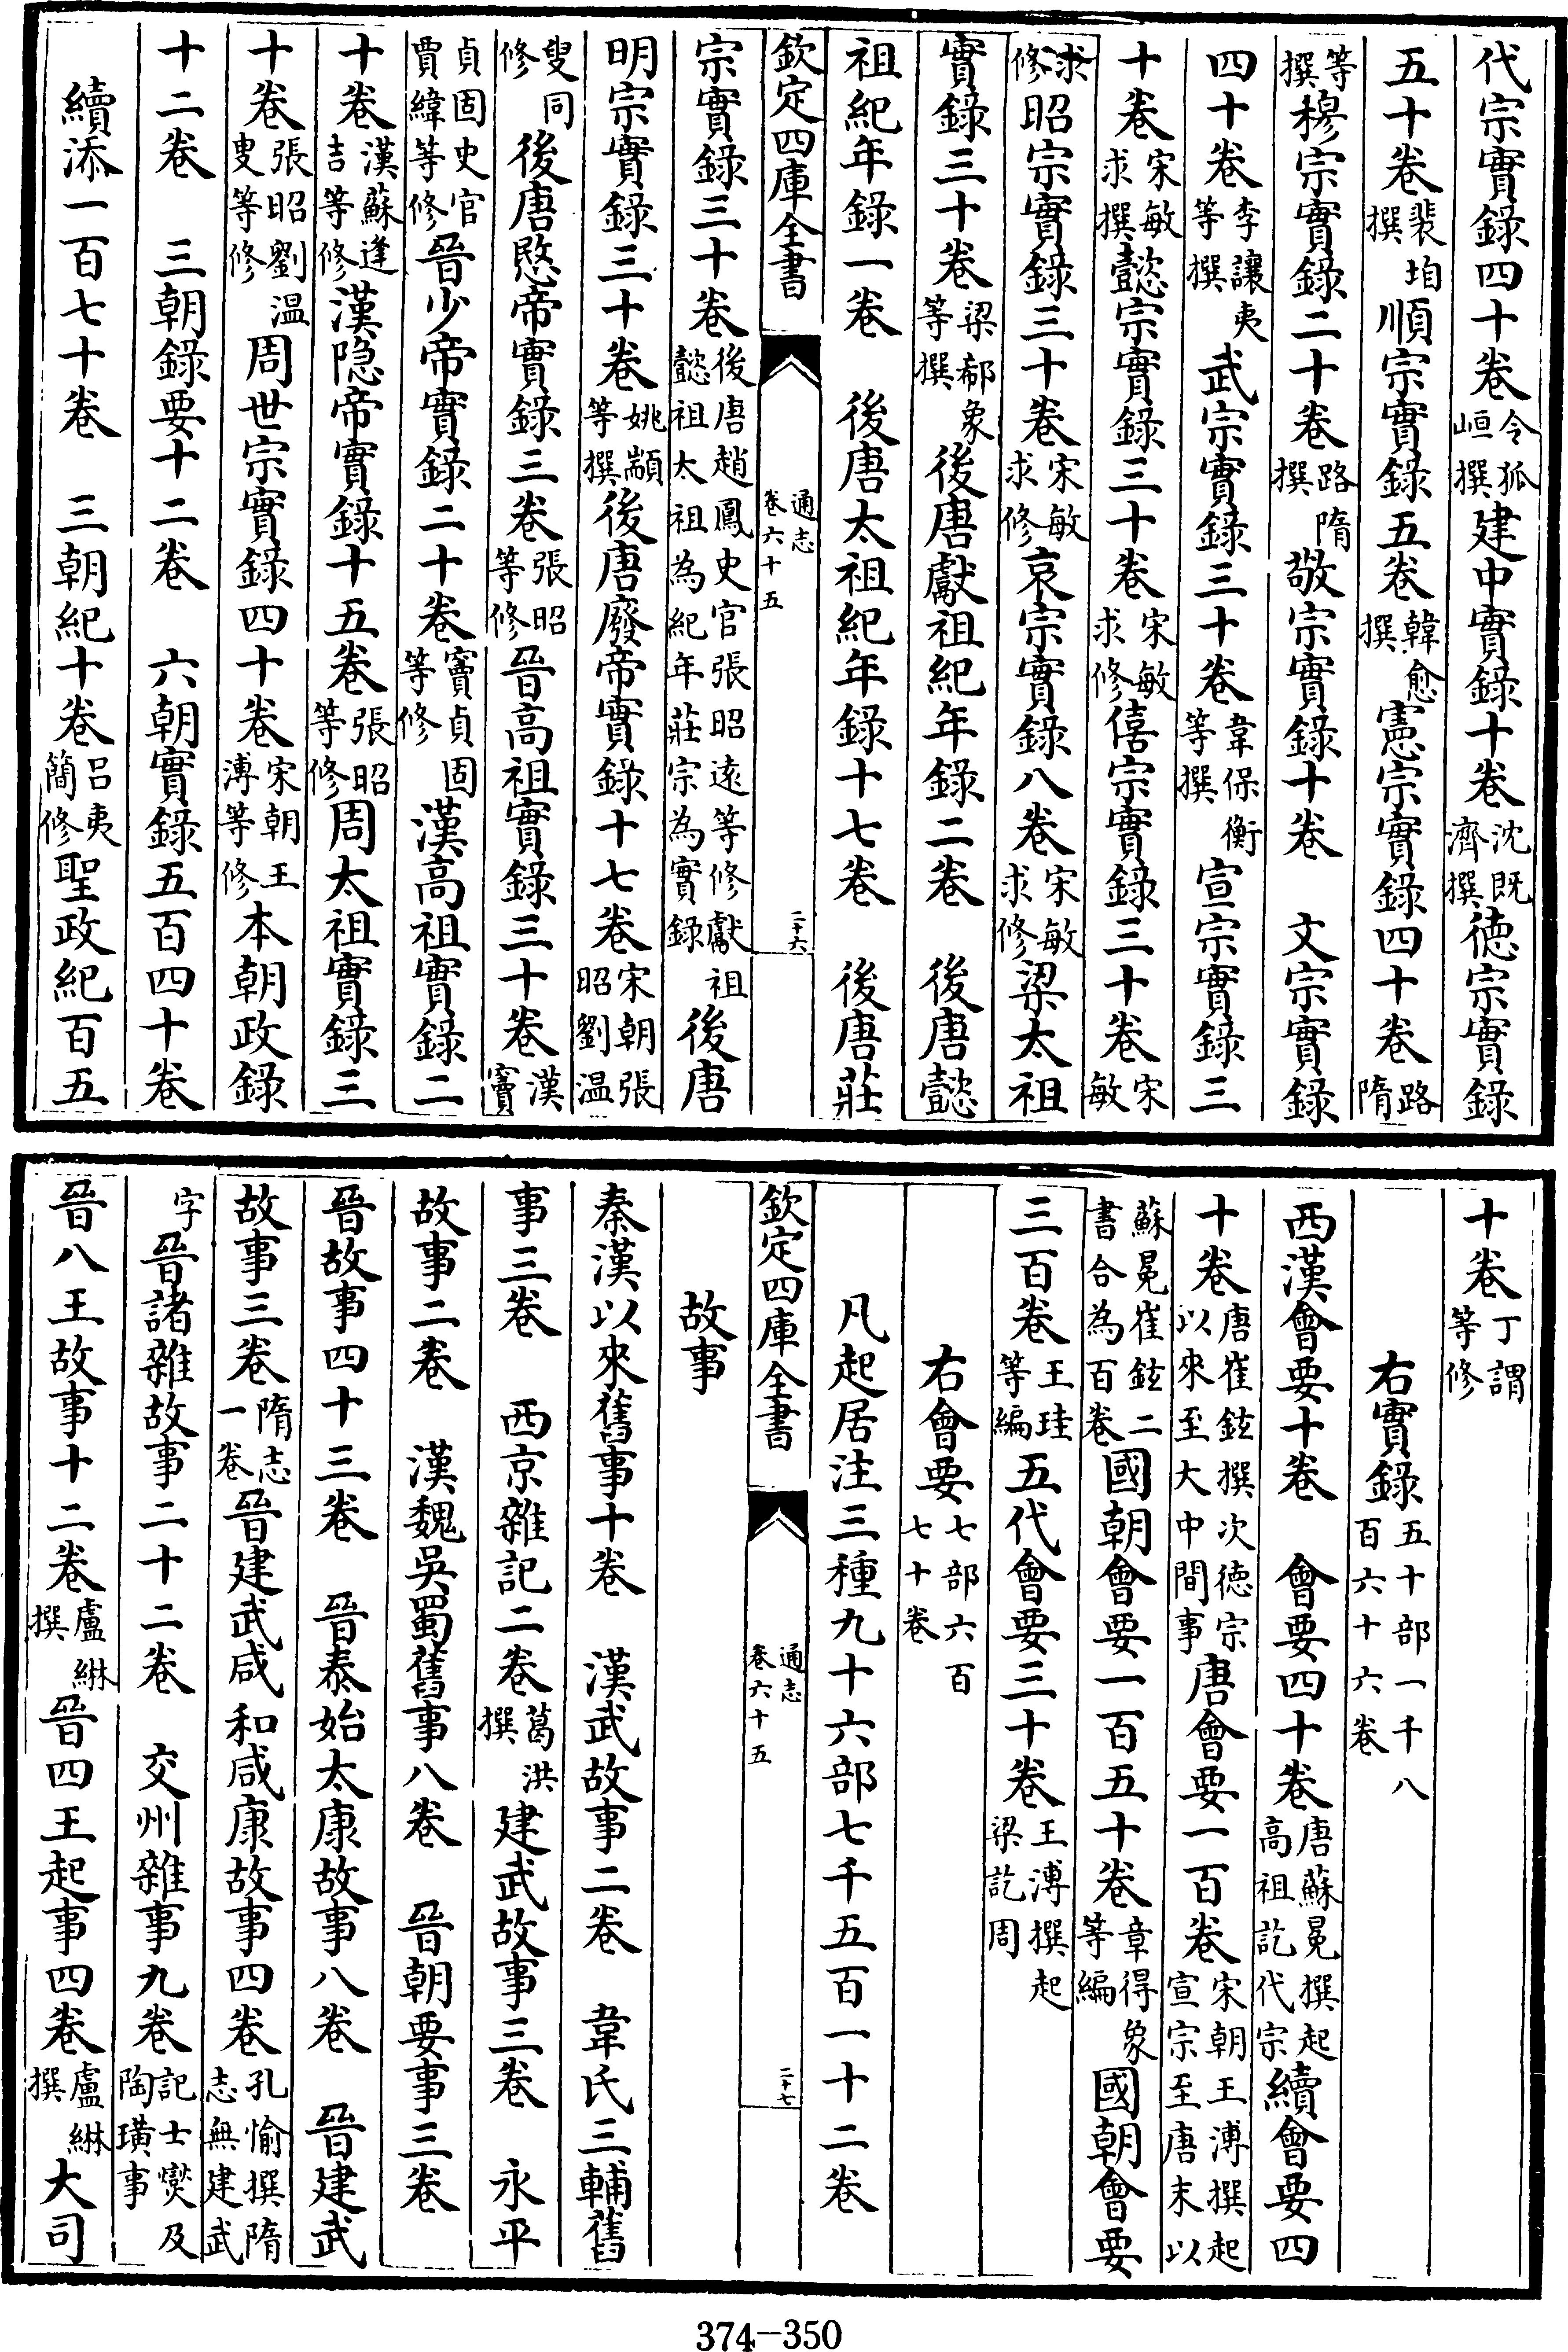 代宗實錄四十卷令狐峘撰建中實錄十卷沈既濟撰德宗實錄
五十卷裴垍撰順宗實錄五卷韓愈撰憲宗實錄四十卷路隋
等撰穆宗實錄二十卷路隋撰敬宗實錄十卷 文宗實錄
四十卷李讓夷等撰武宗實錄三十卷韋保衡等撰宣宗實錄三
十卷宋敏求撰懿宗實錄三十卷宋敏求修僖宗實錄三十卷宋敏
求修昭宗實錄三十卷宋敏求修哀宗實錄八卷宋敏求修梁太祖
實錄三十卷梁郗象等撰後唐獻祖紀年錄二卷 後唐懿
祖紀年錄一卷 後唐太祖紀年錄十七卷 後唐莊
欽定四庫全書 通志卷六十五 二十六
宗實錄三十卷後唐趙鳳史官張昭遠等修獻祖懿祖太祖為紀年莊宗為實錄後唐
明宗實錄三十卷姚顓等撰後唐廢帝實錄十七卷宋朝張昭劉温
叟同修後唐愍帝實錄三卷張昭等修晉高祖實錄三十卷漢竇
貞固史官賈緯等修晉少帝實錄二十卷竇貞固等修漢高祖實錄二
十卷漢蘇逢吉等修漢隐帝實錄十五卷張昭等修周太祖實錄三
十卷張昭劉温叟等修周世宗實錄四十卷宋朝王溥等修本朝政錄
十二卷 三朝錄要十二卷 六朝實錄五百四十卷
續添一百七十卷 三朝紀十卷呂夷簡修聖政紀百五
十卷丁謂等修
右實錄五十部一千八百六十六卷
西漢會要十卷 會要四十卷唐蘇冕撰起高祖訖代宗續會要四
十卷唐崔鉉撰次德宗以來至大中間事唐會要一百卷宋朝王溥撰起宣宗至唐末以
蘇冕崔鉉二書合為百卷國朝會要一百五十卷章得象等編國朝會要
三百卷王珪等編五代會要三十卷王溥撰起梁訖周
右會要七部六百七十卷
凡起居注三種九十六部七千五百一十二卷
欽定四庫全書 通志卷六十五 二十七
故事
秦漢以來舊事十卷 漢武故事二卷 韋氏三輔舊
事三卷 西京雜記二卷葛洪撰建武故事三卷 永平
故事二卷 漢魏吳蜀舊事八卷 晉朝要事三卷
晉故事四十三卷 晉泰始太康故事八卷 晉建武
故事三卷隋志一卷晉建武咸和咸康故事四卷孔愉撰隋志無建武
字晉諸雜故事二十二卷 交州雜事九卷記士燮及陶璜事
晉八王故事十二卷盧綝撰晉四王起事四卷盧綝撰大司
374-350